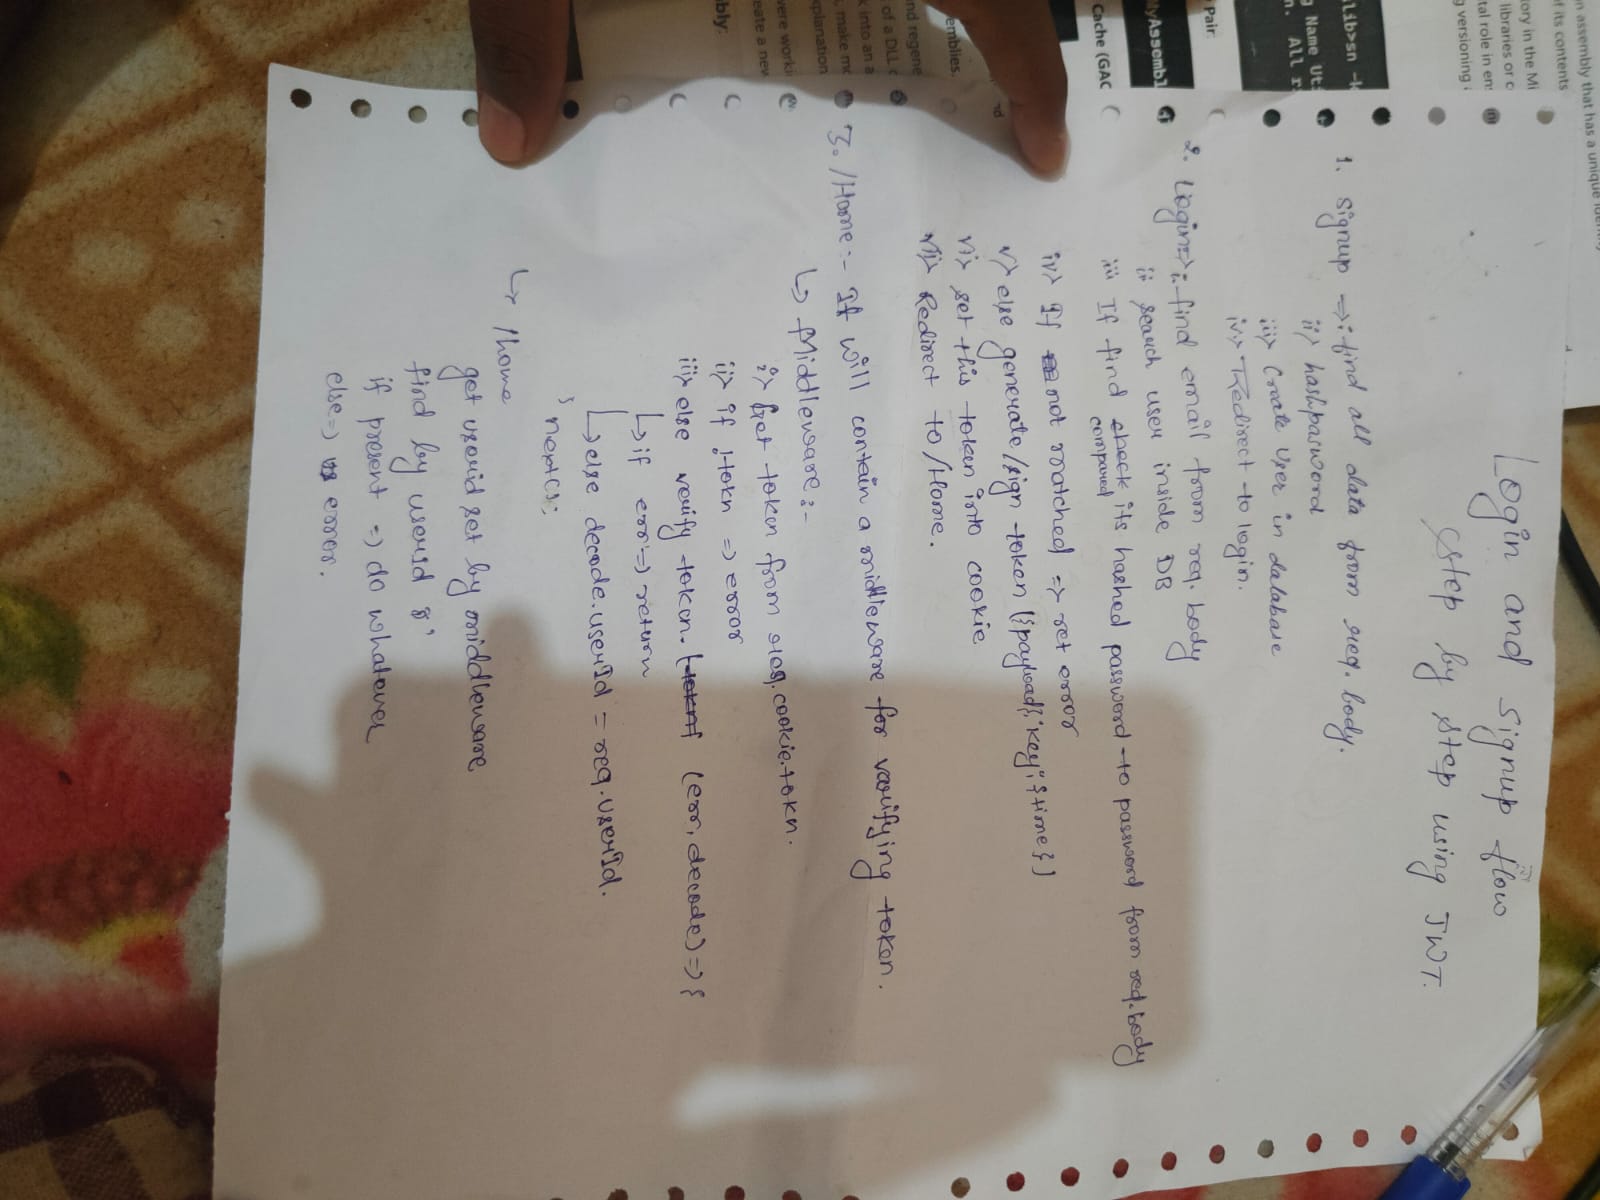 Login and Signup flow
Step by step using JWT.
1. Signup => i. find all data from req. body.
ii> hash password
iii> Create user in database
iv> Redirect to login.
2. Login => i. find email from req. body
ii search user inside DB
iii If find check its hashed password to password from req.body
compared
iv> If not matched => ret error
v> else generate/sign token ({payload{'key':}time})
vi> set this token into cookie
vii> Redirect to /Home.
3. /Home :- It will contain a middleware for varifying token.
↳ Middleware :-
i> get token from req.cookie.tokn.
ii> if !tokn => error
iii> else verify token. (err, decode) => {
↳ if err => return
↳ else decode.userId = req.userId.
} next();
↳ /home
get userid set by middleware
find by userid &
if present => do whatever
else => error.
n assembly that has a unique
f its contents
tory in the Mi
libraries or c
tal role in en
g versioning
g Name Ut
n. All r
Pair:
MyAssembl
Cache (GAC
emblies.
nd regene
of a DLL
k into an a
, make mo
xplanation
were worki
eate a new
bly: